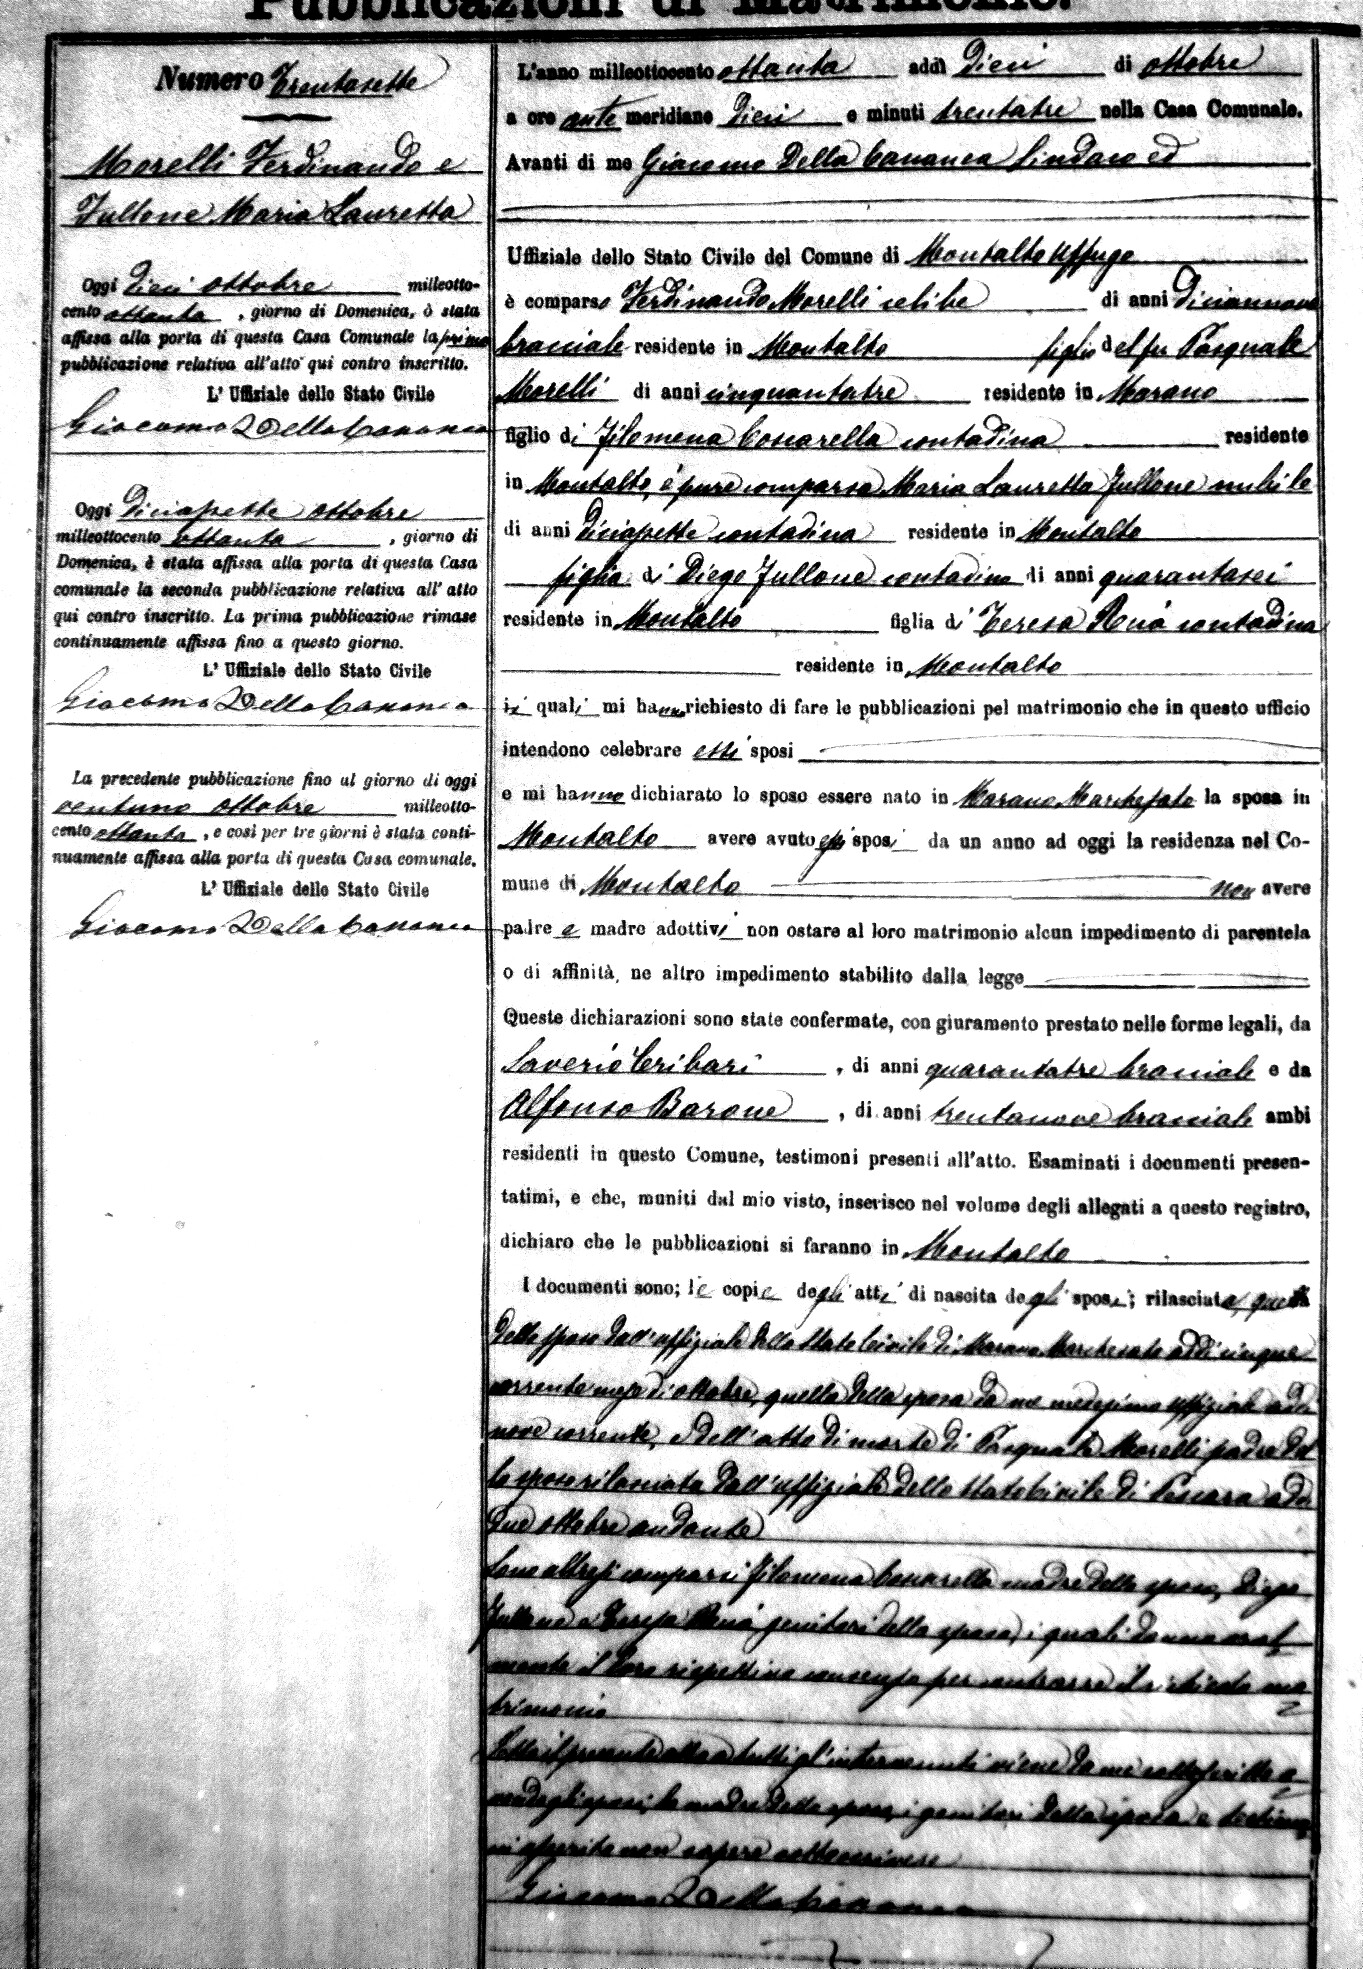 Pubblicazioni di Matrimonio.
Numero Trentasette
Morelli Ferdinando e
Fullone Maria Lauretta
Oggi dieci ottobre milleotto-
cento ottanta, giorno di Domenica, è stata
affissa alla porta di questa Casa Comunale la prima
pubblicazione relativa all'atto qui contro inscritto.
L'Uffiziale dello Stato Civile
Giacomo Della Cananea
Oggi diciassette ottobre
milleottocento ottanta, giorno di
Domenica, è stata affissa alla porta di questa Casa
comunale la seconda pubblicazione relativa all'atto
qui contro inscritto. La prima pubblicazione rimase
continuamente affissa fino a questo giorno.
L'Uffiziale dello Stato Civile
Giacomo Della Cananea
La precedente pubblicazione fino al giorno di oggi
ventuno ottobre milleotto-
cento ottanta, e così per tre giorni è stata conti-
nuamente affissa alla porta di questa Casa comunale.
L'Uffiziale dello Stato Civile
Giacomo Della Cananea
L'anno milleottocento ottanta addì dieci di ottobre
a ore ante meridiane dieci e minuti trentatre nella Casa Comunale.
Avanti di me Giacomo Della Cananea Sindaco ed
Uffiziale dello Stato Civile del Comune di Montalto Uffugo
è comparso Ferdinando Morelli celibe di anni diciannove
braciale residente in Montalto figlio del fu Pasquale
Morelli di anni cinquantatre residente in Marano
figlio di Filomena Coscarella contadina residente
in Montalto, è pure comparsa Maria Lauretta Fullone nubile
di anni diciassette contadina residente in Montalto
figlia di Diego Fullone contadino di anni quarantasei
residente in Montalto figlia di Teresa Ruà contadina
residente in Montalto
i quali mi hanno richiesto di fare le pubblicazioni pel matrimonio che in questo ufficio
intendono celebrare essi sposi
e mi hanno dichiarato lo sposo essere nato in Marano Marchesato la sposa in
Montalto avere avuto essi sposi da un anno ad oggi la residenza nel Co-
mune di Montalto non avere
padre e madre adottivi non ostare al loro matrimonio alcun impedimento di parentela
o di affinità, ne altro impedimento stabilito dalla legge
Queste dichiarazioni sono state confermate, con giuramento prestato nelle forme legali, da
Saverio Ceribari, di anni quarantatre braciale e da
Alfonso Barone, di anni trentanove braciale ambi
residenti in questo Comune, testimoni presenti all'atto. Esaminati i documenti presen-
tatimi, e che, muniti dal mio visto, inserisco nel volume degli allegati a questo registro,
dichiaro che le pubblicazioni si faranno in Montalto
I documenti sono; le copie degli atti di nascita degli sposi; rilasciata quella
dello sposo dall'uffiziale dello Stato Civile di Marano Marchesato addì cinque
corrente mese di ottobre, quella della sposa da me medesimo uffiziale addi
nove corrente, e dell'atto di morte di Pasquale Morelli padre del
lo sposo rilasciata dall'uffiziale dello Stato Civile di Pescara addi
due ottobre andante
Sono altresì comparsi Filomena Coscarella madre dello sposo, Diego
Fullone e Teresa Ruà genitori della sposa, i quali danno oral
mente il loro rispettivo consenso per contrarre il richiesto ma
trimonio
Letto il presente atto a tutti gl'intervenuti viene da me sottoscritto a
vendo gli sposi, la madre dello sposo, i genitori della sposa e testimo
ni asserito non sapere sottoscrivere
Giacomo Della Cananea